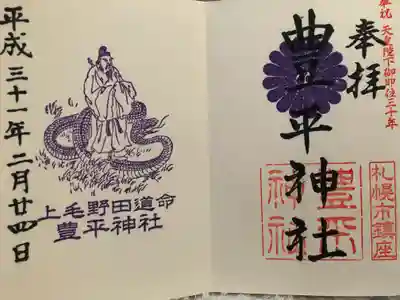 奉祝 天皇陛下御即位三十年
奉拝
豊平神社
札幌市鎮座
豊平神社
上毛野田道命
豊平神社
平成三十一年二月廿四日